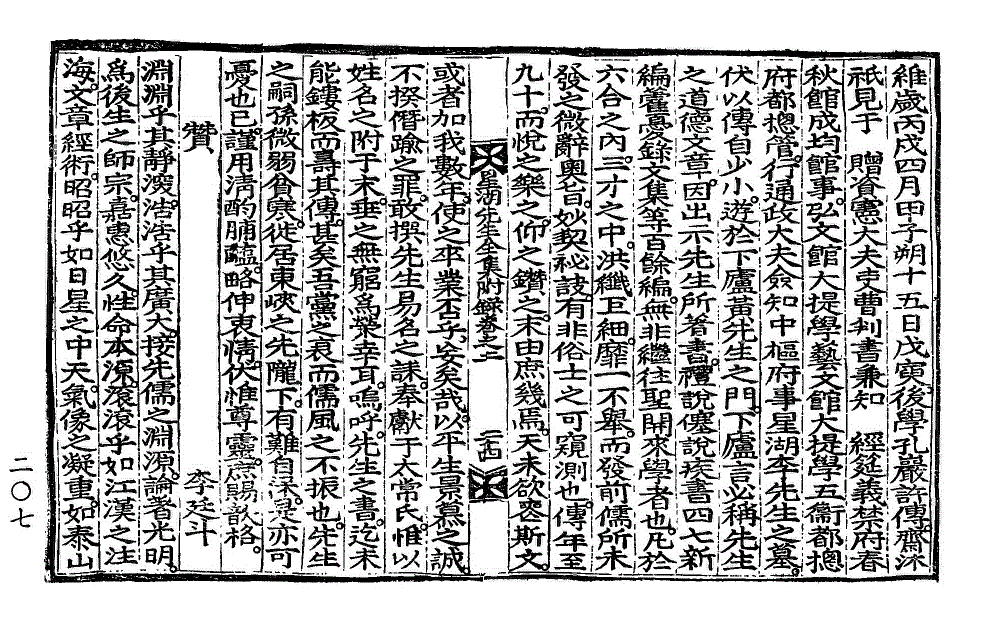 維歲丙戌四月甲子朔十五日戊寅後學孔巖許傳齋沐
祇見于　贈資憲大夫吏曹判書兼知　經筵義禁府春
秋館成均館事弘文館大提學藝文館大提學五衛都摠
府都摠管行通政大夫僉知中樞府事星湖李先生之墓
伏以傳自少小遊於下廬黃先生之門下廬言必稱先生
之道德文章因出示先生所著書禮說僿說疾書四七新
編藿憂錄文集等百餘編無非繼往聖開來學者也凡於
六合之內三才之中洪纖巨細靡一不舉而發前儒所未
發之微辭奧旨妙契祕詼有非俗士之可窺測也傳年至
九十而悅之樂之仰之鑽之末由庶幾焉天未欲喪斯文
星湖先生全集附錄卷之二　二西
或者加我數年使之卒業否乎妄矣哉以平生景慕之誠
不揆僭踰之罪敢撰先生易名之誄奉獻于太常氏惟以
姓名之附于末垂之無窮爲榮幸耳嗚呼先生之書迄未
能鏤板而壽其傳甚矣吾黨之衰而儒風之不振也先生
之嗣孫微弱貧寒徙居東峽之先隴下有難自深是亦可
憂也已謹用淸酌脯醢略伸衷情伏惟尊靈庶賜歆格
贊　李廷斗
淵淵乎其靜深浩浩乎其廣大接先儒之淵源論者光明
爲後生之師宗嘉惠悠久性命本源滾滾乎如江漢之注
海文章經術昭昭乎如日星之中天氣像之凝重如泰山
二〇七